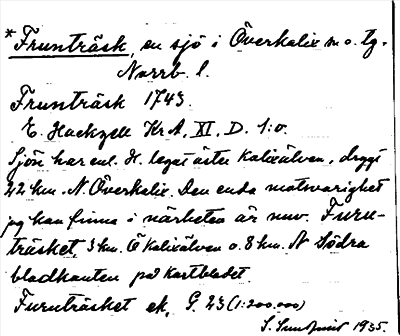 *Frunträsk, en sjö i Överkalix sn o. tg.
Norrb. l.
Frunträsk 1743.
E. Hackzell KrA, XI, D. 1:o.
Sjön har enl. H. legat öster Kalixälven, drygt
22 km. N. Överkalix. Den enda motsvarighet
jag kan finna i närheten är nuv. Furu-
träsket, 3 km. Ö Kalixälven o. 8 km. N Södra
bladkanten på kartbladet
Furuträsket ek. G. 23 (1:200.000)
S. Sundqvist 1935.